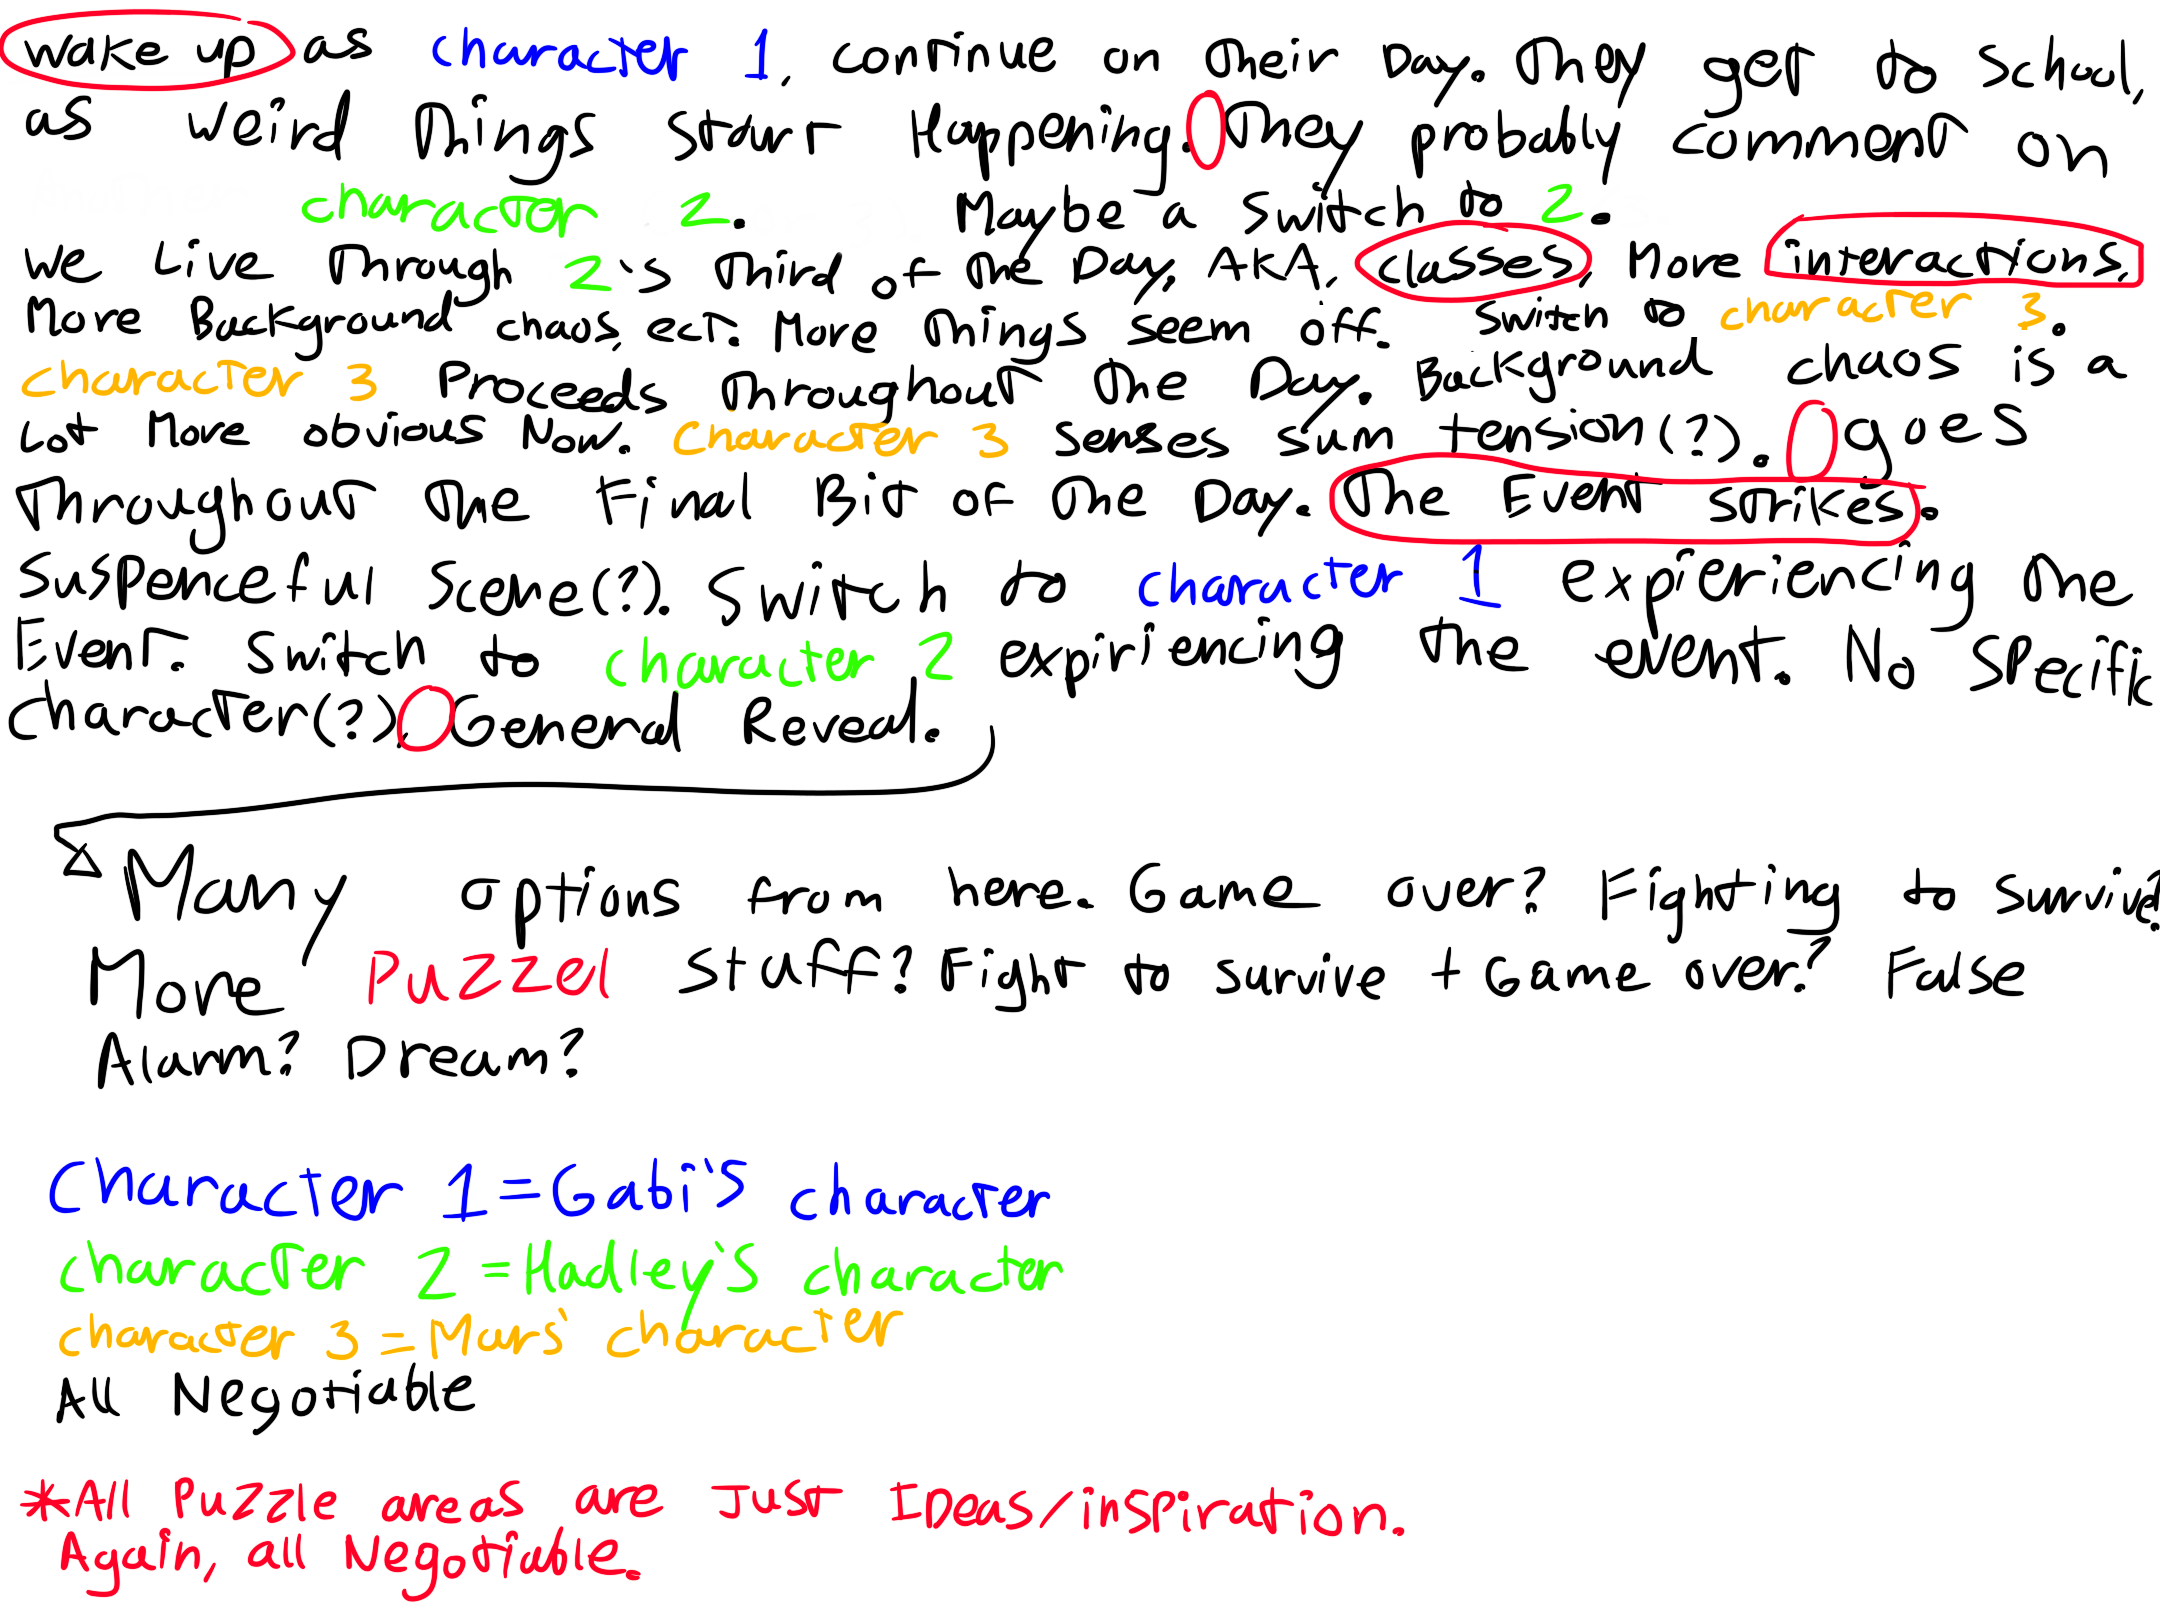 wake up as character 1, continue on their Day. They get to School,
as weird things start Happening. They probably comment on
character 2. Maybe a switch to 2.
we Live through 2's third of the Day, AKA, classes, More interactions,
More Background chaos, ect. More things seem off. switch to character 3.
character 3 Proceeds throughout the Day. Background chaos is a
Lot More obvious Now. Character 3 senses sum tension(?). goes
throughout the Final Bit of the Day. The Event strikes.
Suspenceful Scene(?). Switch to character 1 expieriencing the
Event. Switch to character 2 expiriencing the event. No Specific
Character(?), General Reveal.
Many options from here. Game over? Fighting to survive?
More Puzzel stuff? Fight to survive + Game over? False
Alarm? Dream?
Character 1 = Gabi's character
character 2 = Hadley's character
character 3 = Mars' character
All Negotiable
*All Puzzle areas are Just IDeas/inspiration.
Again, all Negotiable.